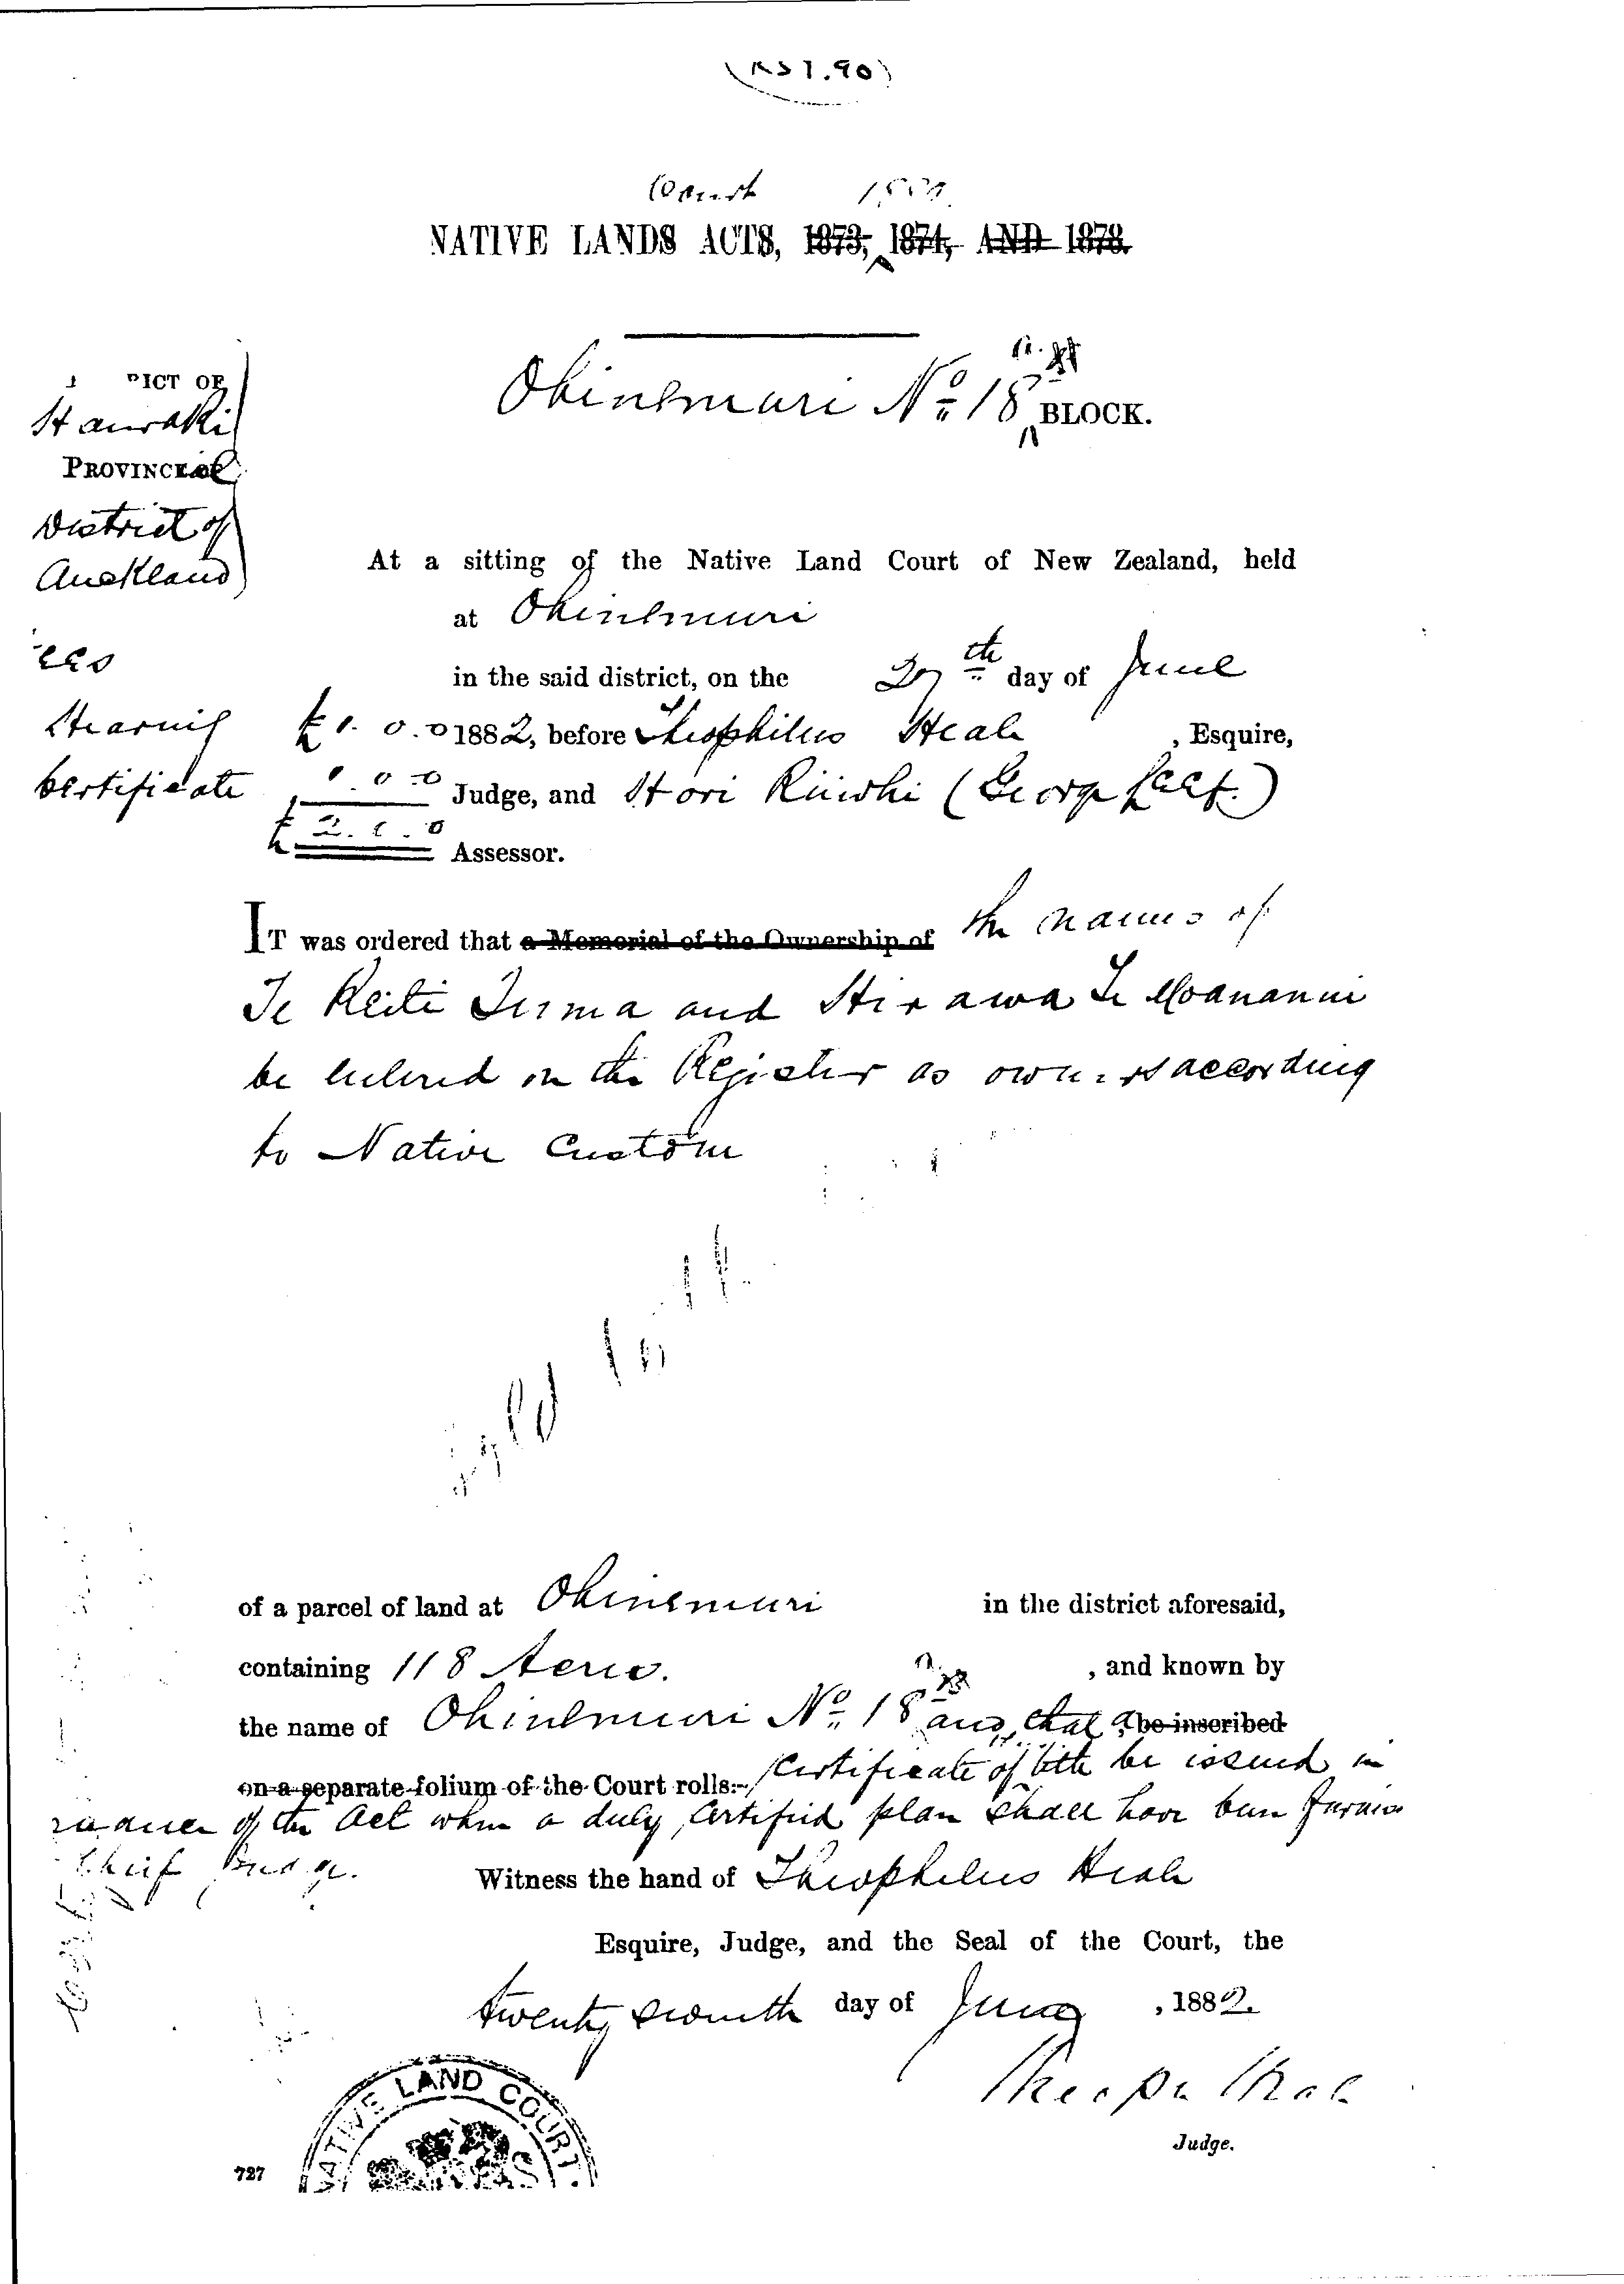 Court 1880
NATIVE LANDS ACTS, 1873, 1874, AND 1878.
Ohinemuri No 18 BLOCK.
RICT OF
Hauraki
PROVINCIAL
District of
Auckland
At a sitting of the Native Land Court of New Zealand, held
at Ohinemuri
in the said district, on the 27th day of June
1882, before Theophilus Heale, Esquire,
Hearing £1.0.0
Certificate 1.0.0
£2.0.0
Judge, and Hori Riiwhi (George)
Assessor.
IT was ordered that a Memorial of the Ownership of the names of
Te Reiti and Hirawa Te Moananui
be entered in the Register as owners according
to Native Custom
of a parcel of land at Ohinemuri in the district aforesaid,
containing 118 Acres. , and known by
the name of Ohinemuri No 18 and that a be inscribed
on a separate folium of the Court rolls. Certificate of title be issued in
of the Act when a duly certified plan shall have been
Chief Judge.
Witness the hand of Theophilus Heale
Esquire, Judge, and the Seal of the Court, the
twenty seventh day of June, 1882.
Theoph Heale
Judge.
NATIVE LAND COURT
727